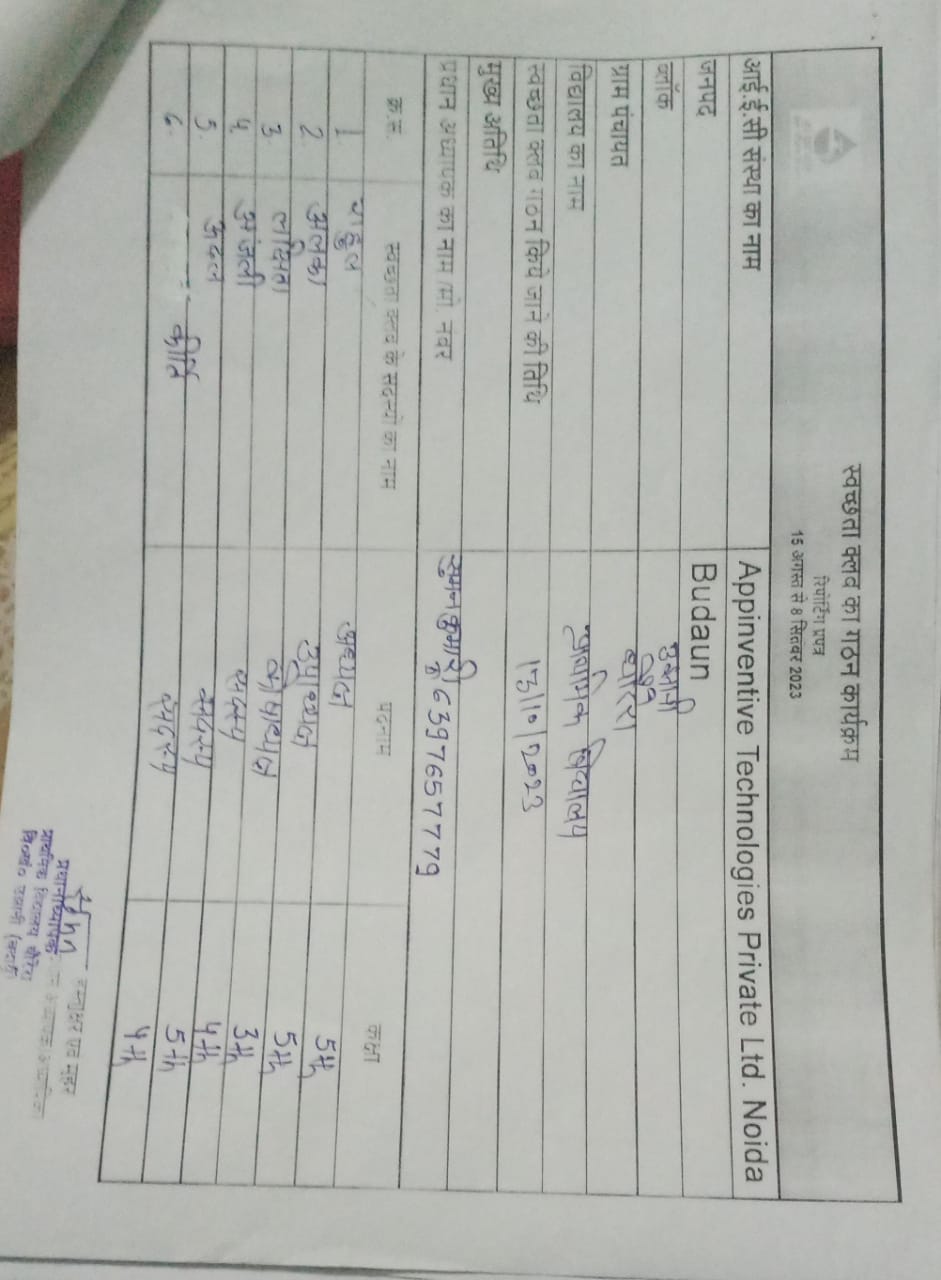 स्वच्छता क्लव का गठन कार्यक्रम
रिपोर्टिंग प्रपत्र
15 अगस्त से 8 सितंबर 2023
आई.ई.सी संस्था का नाम Appinventive Technologies Private Ltd. Noida
जनपद Budaun
ब्लॉक
ग्राम पंचायत
विद्यालय का नाम प्राथमिक विद्यालय
स्वच्छता क्लव गठन किये जाने की तिथि
मुख्य अतिथि
प्रधान अध्यापक का नाम /मो. नंवर सुमन कुमारी 6397657779
क्र.स. स्वच्छता क्लव के सदस्यों का नाम पदनाम कक्षा
1. राहुल अध्यक्ष 5th
2. अलका उपाध्यक्ष 5th
3. लक्षिता कोषाध्यक्ष 3th
4. अंजली सदस्य 4th
5. सदस्य 5th
6. कीर्ति सदस्य 4th
हस्ताक्षर एवं मुहर
प्रधानाध्यापक
प्राथमिक विद्यालय